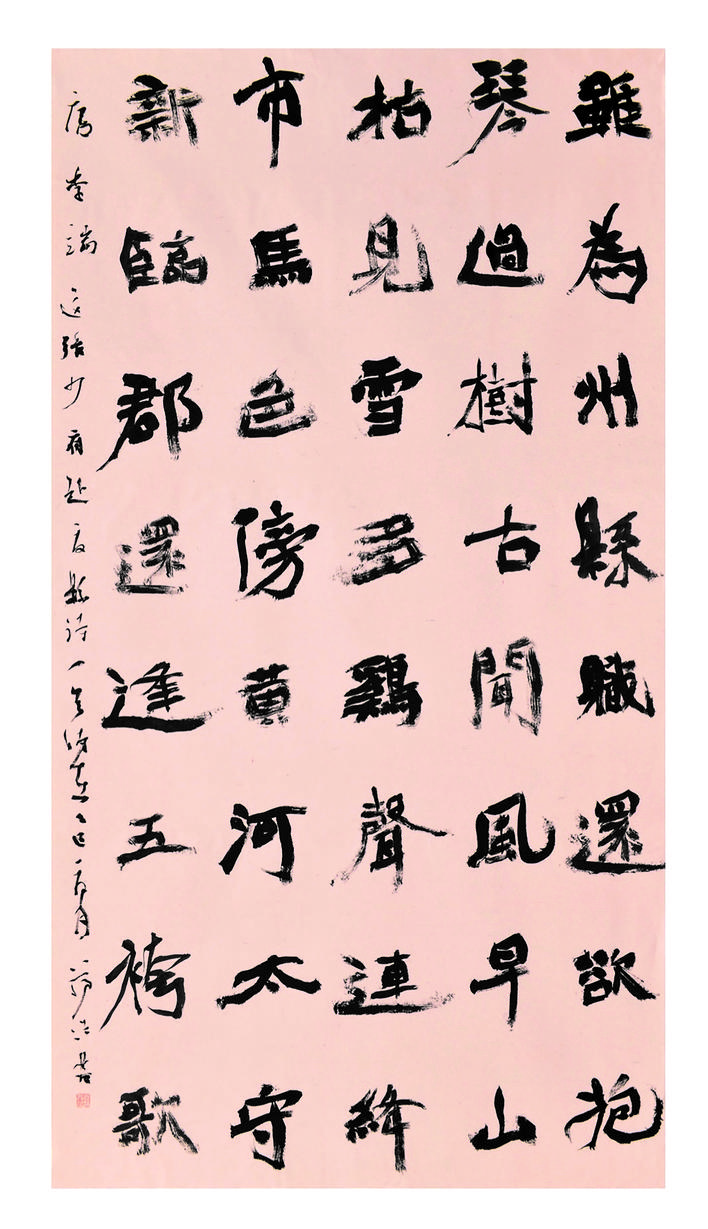 雖為州縣職還欲抱
琴過樹古聞風早山
枯見雪多鷄聲連絳
市馬色傍黃河太守
新臨郡還逢五袴歌
唐李端送張少府赴夏縣詩一首